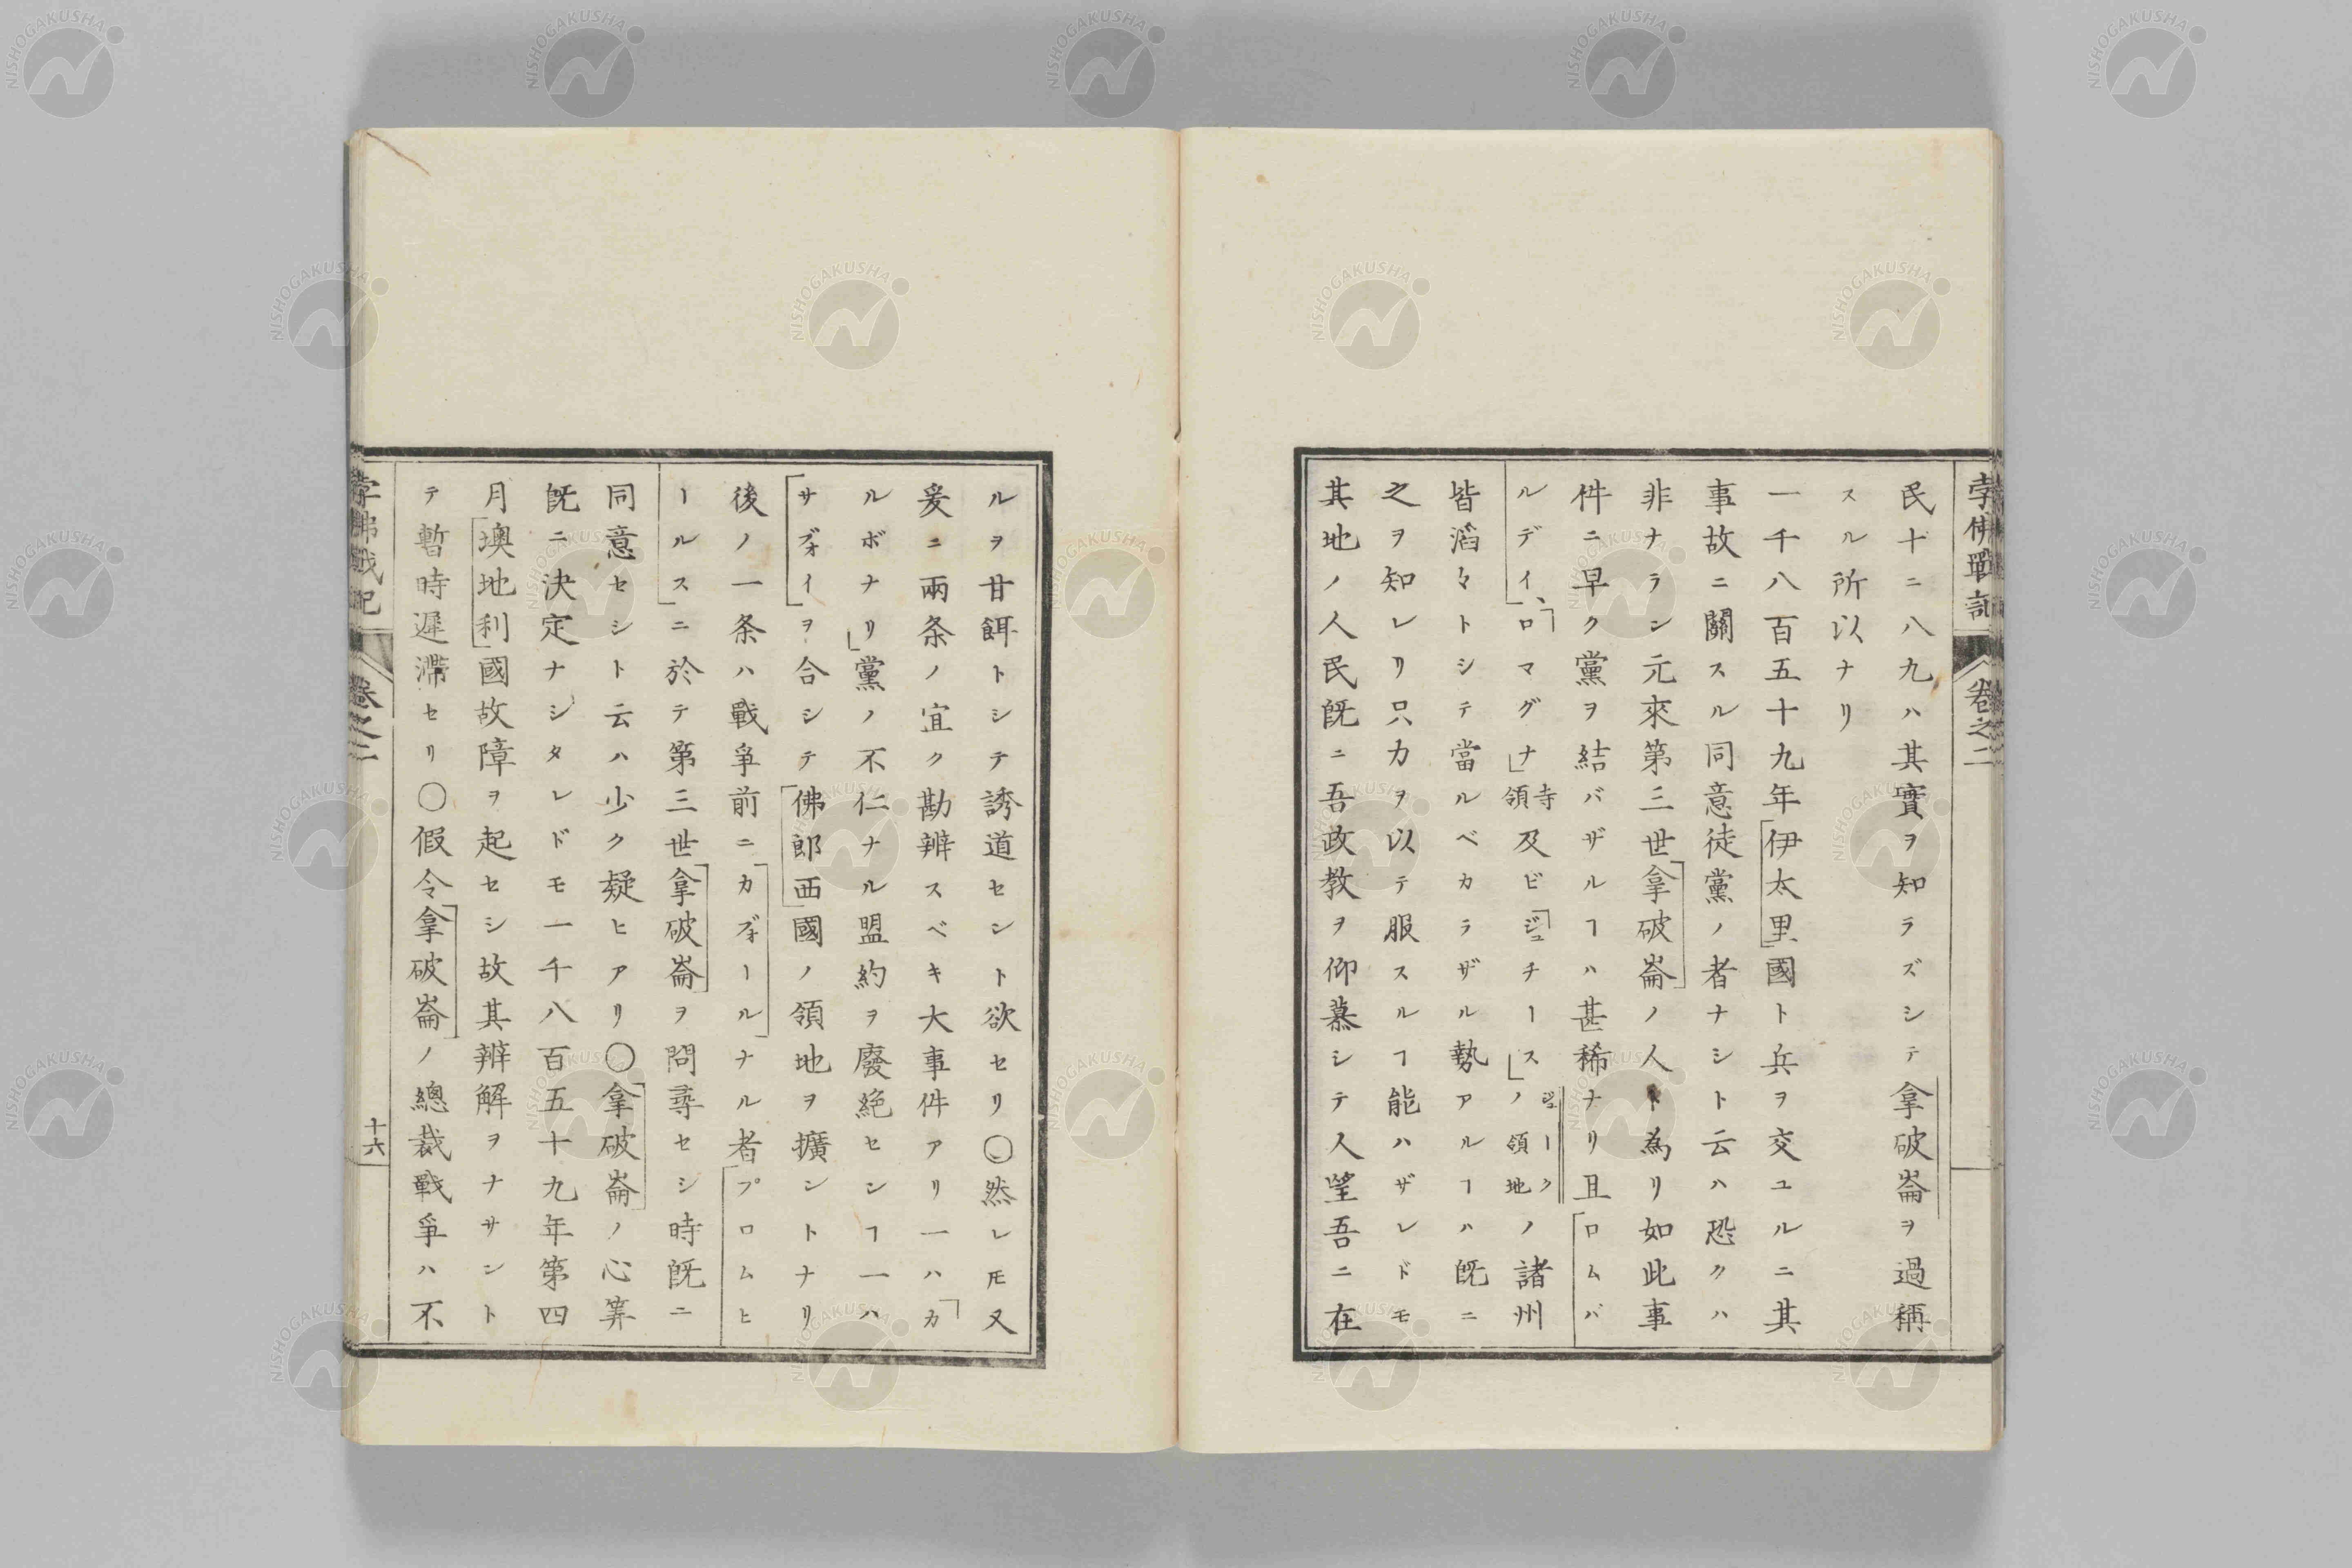 孛佛戰記 卷之二
民十ニ八九ハ其實ヲ知ラズシテ拿破崙ヲ過稱
スル所以ナリ
一千八百五十九年伊太里國ト兵ヲ交ユルニ其
事故ニ關スル同意徒黨ノ者ナシト云ハ恐クハ
非ナラン元來第三世拿破崙ノ人ト為リ如此事
件ニ早ク黨ヲ結バザルヿハ甚稀ナリ且「ロムバ
ルデイ、「ロマグナ」寺領及ビ「ジュチース」ノジューク領地ノ諸州
皆滔々トシテ當ルベカラザル勢アルヿハ既ニ
之ヲ知レリ只力ヲ以テ服スルヿ能ハザレドモ
其地ノ人民既ニ吾政教ヲ仰慕シテ人望吾ニ在
ルヲ甘餌トシテ誘道セント欲セリ〇然レ𪜈又
爰ニ兩条ノ宜ク勘辨スベキ大事件アリ一ハ「カ
ルボナリ」黨ノ不仁ナル盟約ヲ廢絶センヿ一ハ
「サヴォイ」ヲ合シテ佛郎西國ノ領地ヲ擴ントナリ
後ノ一条ハ戰爭前ニ「カヴォール」ナル者「プロムヒ
ールス」ニ於テ第三世拿破崙ヲ問尋セシ時既ニ
同意セシト云ハ少ク疑ヒアリ〇拿破崙ノ心算
既ニ決定ナシタレドモ一千八百五十九年第四
月墺地利國故障ヲ起セシ故其辨解ヲナサント
テ暫時遲滯セリ〇假令拿破崙ノ總裁戰爭ハ不
孛佛戰記 卷之二 十六
NISHOGAKUSHA